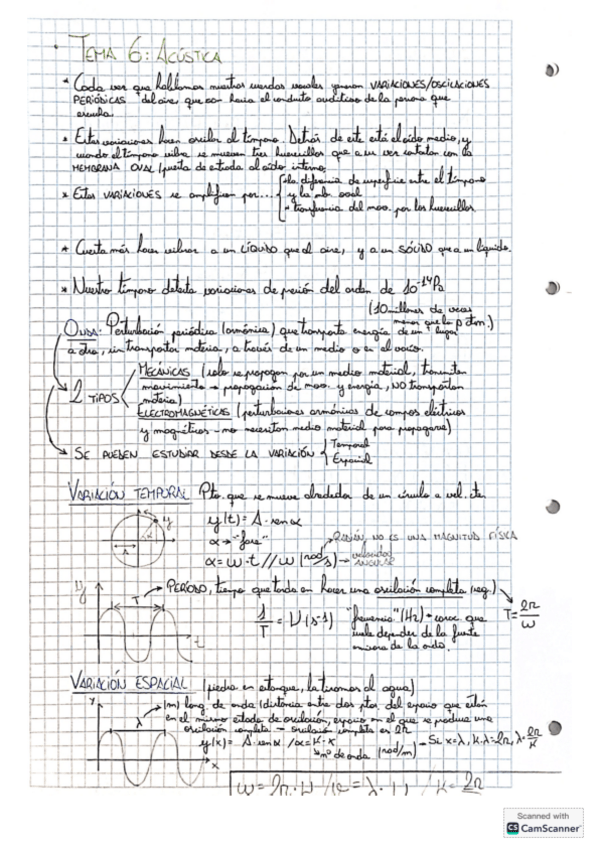 · TEMA 6: ACÚSTICA
* Cada vez que hablamos nuestras cuerdas vocales generan VARIACIONES/OSCILACIONES
PERIÓDICAS del aire que van hacia el conducto auditivo de la persona que
escucha.
* Estas variaciones hacen oscilar al tímpano. Detrás de este está el oído medio, y
cuando el tímpano vibra se mueven tres huesecillos que a su vez contactan con la
MEMBRANA OVAL (puerta de entrada al oído interno)
* Estas VARIACIONES se amplifican por...
- la diferencia de superficie entre el tímpano
y la mb. oval
* transferencia del mov. por los huesecillos
* Cuesta más hacer vibrar a un LÍQUIDO que al aire, y a un SÓLIDO que a un líquido.
* Nuestro tímpano detecta variaciones de presión del orden de 10⁻¹⁴Pa
(10 millones de veces
menor que la p atm.)
ONDA: Perturbación periódica (armónica) que transporta energía de un lugar
a otro, sin transportar materia, a través de un medio o en el vacío.
2 TIPOS
MECÁNICAS (solo se propagan por un medio material, transmiten
movimiento → propagación de mov. y energía, NO transportan
materia)
ELECTROMAGNÉTICAS (perturbaciones armónicas de campos eléctricos
y magnéticos - no necesitan medio material para propagarse)
SE PUEDEN ESTUDIAR DESDE LA VARIACIÓN
Temporal
Espacial
VARIACIÓN TEMPORAL Pto. que se mueve alrededor de un círculo a vel. cte
y(t) = A · sen α
α → "fase"
RADIÁN, NO ES UNA MAGNITUD FÍSICA
α = ω · t // ω (rad/s) → velocidad
ANGULAR
y
A
α
y
T
t
PERÍODO, tiempo que tarda en hacer una oscilación completa (seg.)
T = 2π/ω
1/T = ν (s⁻¹) "frecuencia" (Hz) → carac. que
suele depender de la fuente
emisora de la onda.
VARIACIÓN ESPACIAL (piedra en estanque, la tiramos al agua)
y
λ
x
(m) long. de onda (distancia entre dos ptos. del espacio que están
en el mismo estado de oscilación, espacio en el que se produce una
oscilación completa - oscilación completa es 2π
y(x) = A · sen α / α = K · x
nº de onda (rad/m)
→ Si x = λ, K · λ = 2π, λ = 2π/K
ω = 2π · ν / v = λ · ν / K = 2π
Scanned with
CS CamScanner